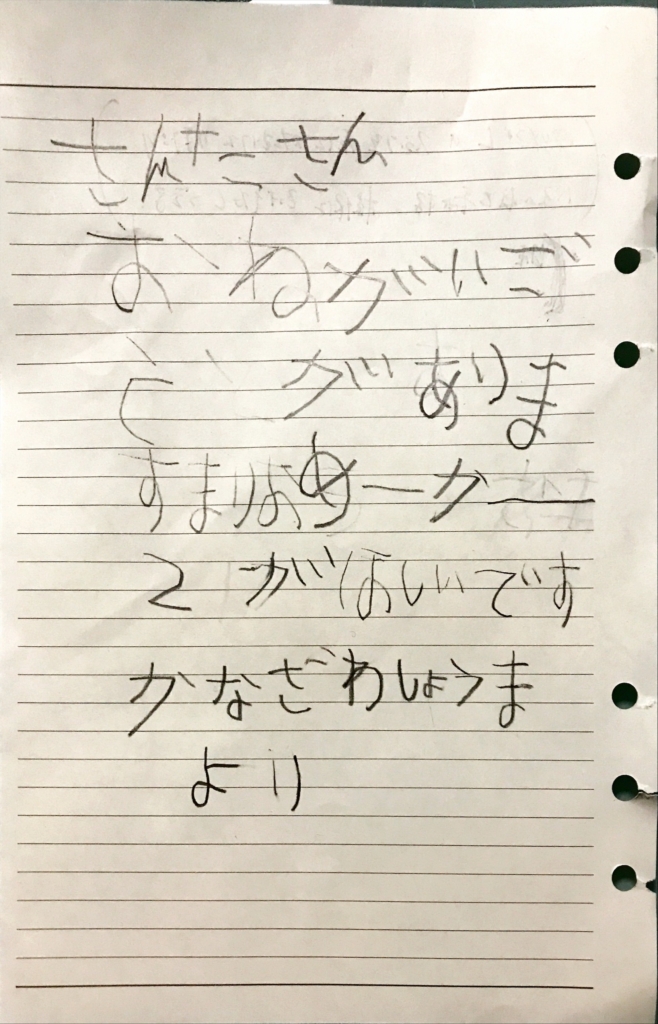 さんたこさん
おねがいご
とが あります
すまりおめーか
2がほしいです
かなざわしょうま
より